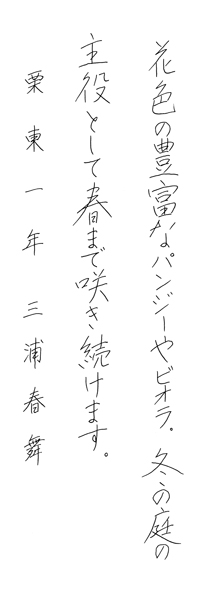 花色の豊富なパンジーやビオラ。冬の庭の
主役として春まで咲き続けます。
栗東一年 三浦春舞